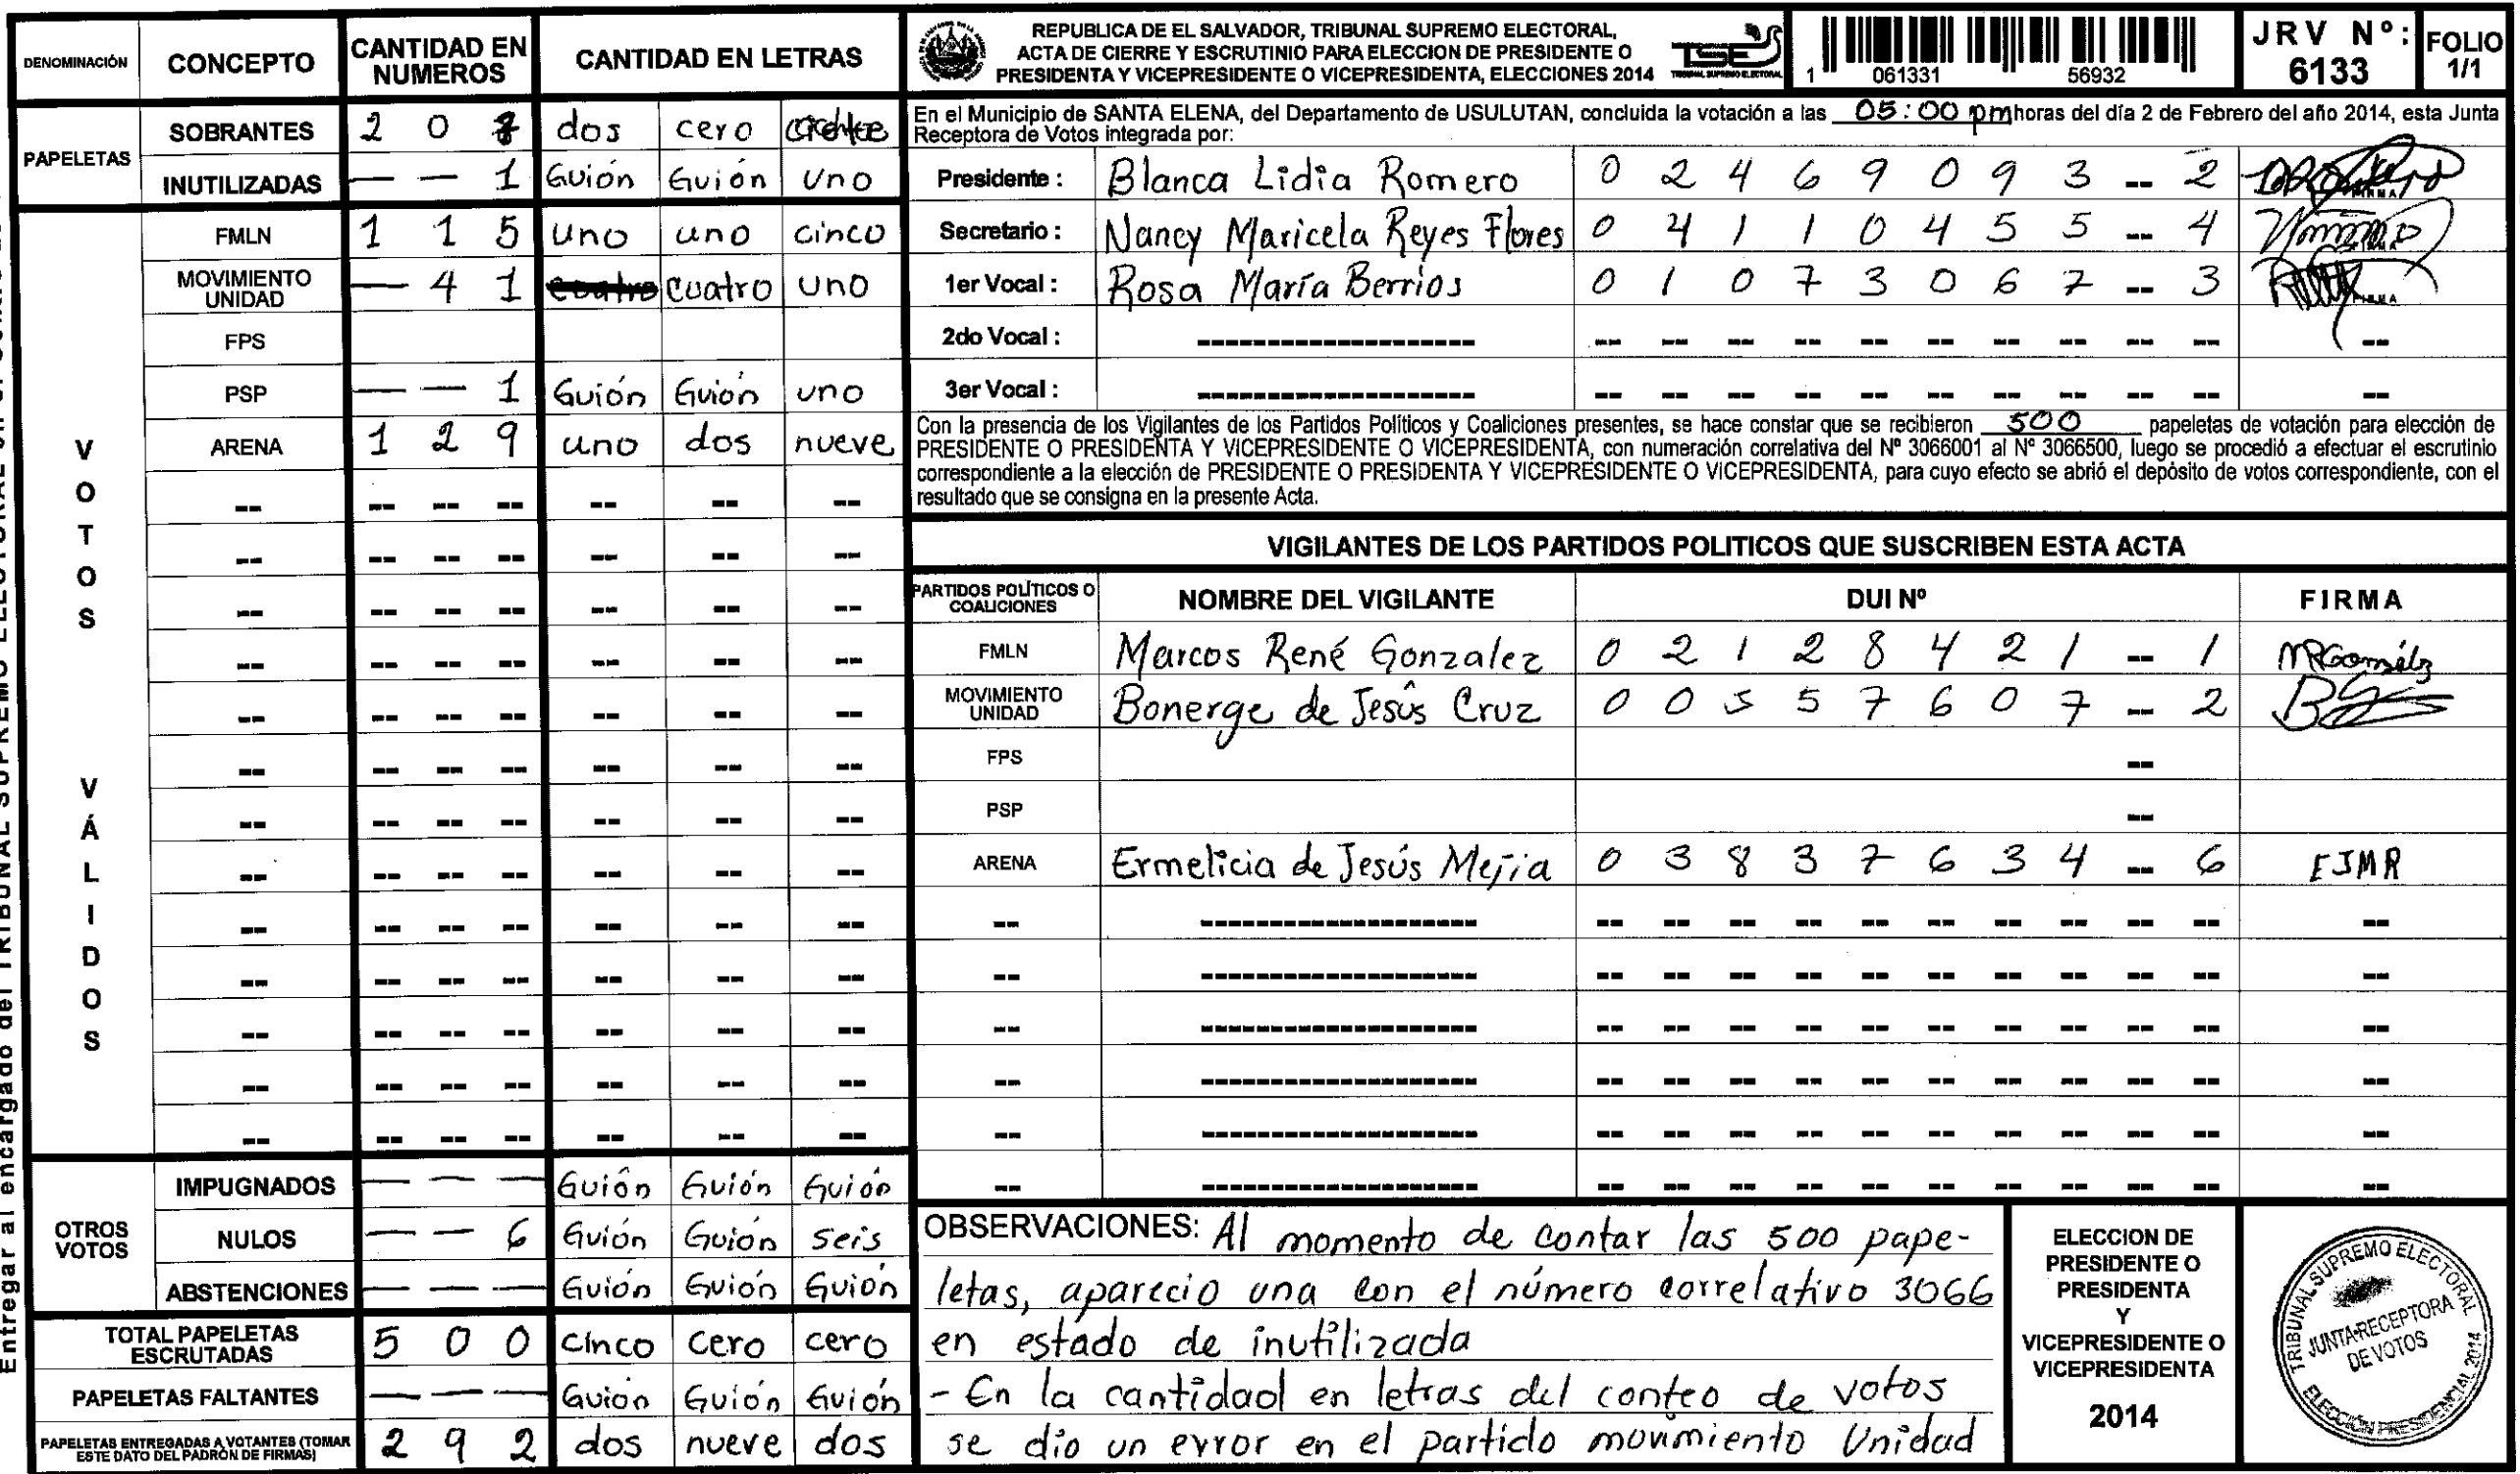 DENOMINACIÓN CONCEPTO CANTIDAD EN NUMEROS CANTIDAD EN LETRAS
PAPELETAS
SOBRANTES 2 0 dos cero
INUTILIZADAS — — 1 Guión Guión Uno
VOTOS VÁLIDOS
FMLN 1 1 5 uno uno cinco
MOVIMIENTO UNIDAD — 4 1 cuatro cuatro uno
FPS
PSP — — 1 Guión Guión uno
ARENA 1 2 9 uno dos nueve
-- -- -- -- -- -- --
-- -- -- -- -- -- --
-- -- -- -- -- -- --
-- -- -- -- -- -- --
-- -- -- -- -- -- --
-- -- -- -- -- -- --
-- -- -- -- -- -- --
-- -- -- -- -- -- --
-- -- -- -- -- -- --
-- -- -- -- -- -- --
-- -- -- -- -- -- --
-- -- -- -- -- -- --
-- -- -- -- -- -- --
OTROS VOTOS
IMPUGNADOS — — — Guión Guión Guión
NULOS — — 6 Guión Guión seis
ABSTENCIONES — — — Guión Guión Guión
TOTAL PAPELETAS ESCRUTADAS 5 0 0 cinco cero cero
PAPELETAS FALTANTES — — — Guión Guión Guión
PAPELETAS ENTREGADAS A VOTANTES (TOMAR ESTE DATO DEL PADRÓN DE FIRMAS) 2 9 2 dos nueve dos
REPUBLICA DE EL SALVADOR, TRIBUNAL SUPREMO ELECTORAL,
ACTA DE CIERRE Y ESCRUTINIO PARA ELECCION DE PRESIDENTE O
PRESIDENTA Y VICEPRESIDENTE O VICEPRESIDENTA, ELECCIONES 2014
TSE
TRIBUNAL SUPREMO ELECTORAL
1 061331 56932
JRV Nº: 6133
FOLIO 1/1
En el Municipio de SANTA ELENA, del Departamento de USULUTAN, concluida la votación a las 05:00 pm horas del día 2 de Febrero del año 2014, esta Junta
Receptora de Votos integrada por:
Presidente : Blanca Lidia Romero 0 2 4 6 9 0 9 3 -- 2 FIRMA
Secretario : Nancy Maricela Reyes Flores 0 4 1 1 0 4 5 5 -- 4
1er Vocal : Rosa María Berrios 0 1 0 7 3 0 6 7 -- 3 FIRMA
2do Vocal : ------------------- -- -- -- -- -- -- -- -- -- -- --
3er Vocal : ------------------- -- -- -- -- -- -- -- -- -- -- --
Con la presencia de los Vigilantes de los Partidos Políticos y Coaliciones presentes, se hace constar que se recibieron 500 papeletas de votación para elección de
PRESIDENTE O PRESIDENTA Y VICEPRESIDENTE O VICEPRESIDENTA, con numeración correlativa del Nº 3066001 al Nº 3066500, luego se procedió a efectuar el escrutinio
correspondiente a la elección de PRESIDENTE O PRESIDENTA Y VICEPRESIDENTE O VICEPRESIDENTA, para cuyo efecto se abrió el depósito de votos correspondiente, con el
resultado que se consigna en la presente Acta.
VIGILANTES DE LOS PARTIDOS POLITICOS QUE SUSCRIBEN ESTA ACTA
PARTIDOS POLÍTICOS O COALICIONES NOMBRE DEL VIGILANTE DUI Nº FIRMA
FMLN Marcos René Gonzalez 0 2 1 2 8 4 2 1 -- 1
MOVIMIENTO UNIDAD Bonerge de Jesús Cruz 0 0 5 5 7 6 0 7 -- 2
FPS --
PSP --
ARENA Ermelicia de Jesús Mejia 0 3 8 3 7 6 3 4 -- 6 EJMR
-- ------------------- -- -- -- -- -- -- -- -- -- -- --
-- ------------------- -- -- -- -- -- -- -- -- -- -- --
-- ------------------- -- -- -- -- -- -- -- -- -- -- --
-- ------------------- -- -- -- -- -- -- -- -- -- -- --
-- ------------------- -- -- -- -- -- -- -- -- -- -- --
-- ------------------- -- -- -- -- -- -- -- -- -- -- --
OBSERVACIONES: Al momento de contar las 500 pape-
letas, aparecio una con el número correlativo 3066
en estado de inutilizada
- En la cantidad en letras del conteo de votos
se dio un error en el partido movimiento Unidad
ELECCION DE
PRESIDENTE O
PRESIDENTA
Y
VICEPRESIDENTE O
VICEPRESIDENTA
2014
TRIBUNAL SUPREMO ELECTORAL
JUNTA RECEPTORA
DE VOTOS
ELECCIÓN PRESIDENCIAL 2014
Entregar al encargado del TRIBUNAL SUPREMO ELECTORAL en el